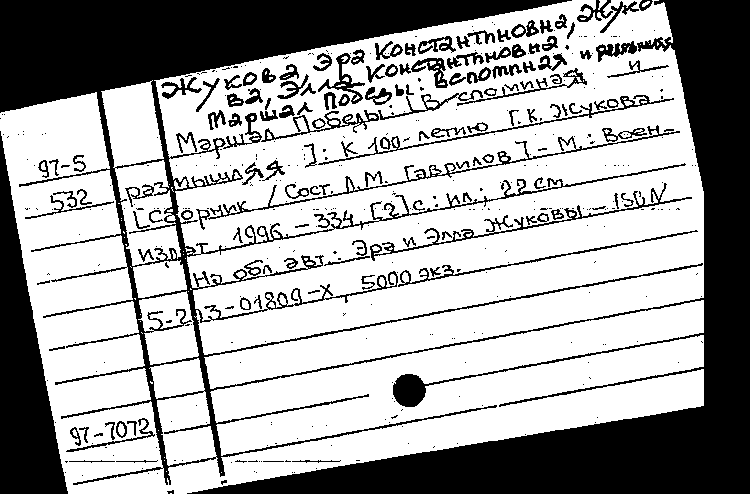 Жукова, Эра Константиновна, Жуко-
ва, Элла Константиновна.
Маршал Победы: Вспоминая и размышляя
Маршал Победы: [Вспоминая и
97-5
размышляя]: К 100-летию Г.К. Жукова:
532
[Сборник / Сост. Л.М. Гаврилов]. - М.: Воен-
издат, 1996. - 334, [2] с.: ил.; 22 см.
На обл. авт.: Эра и Элла Жуковы. - ISBN
5-203-01809-X, 5000 экз.
97-7072